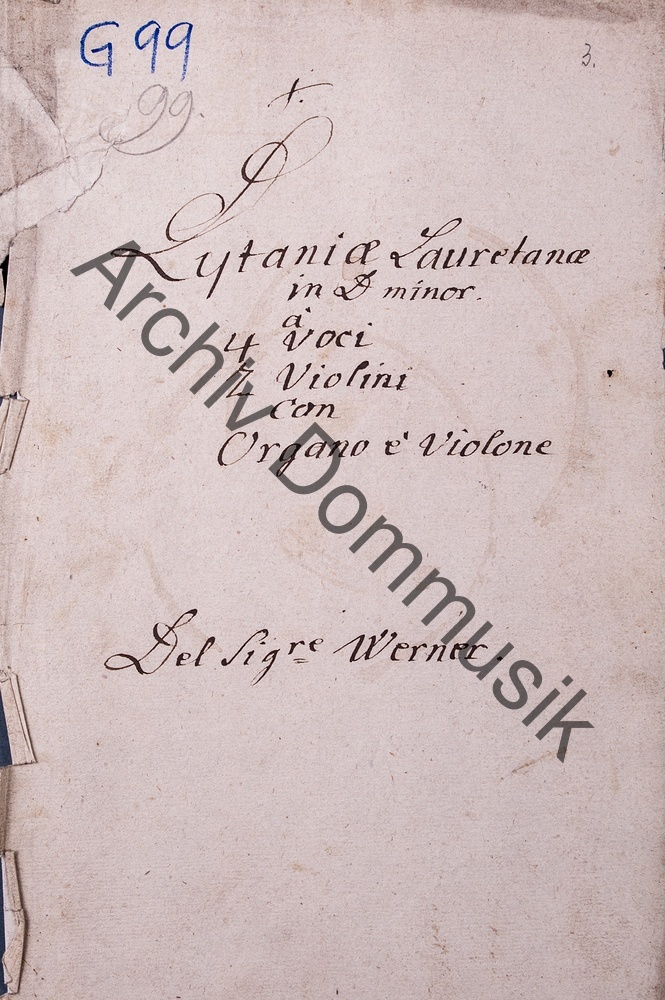 G 99
3.
99.
Lytaniæ Lauretanæ
in D minor.
à
4 Voci
2 Violini
con
Organo è Violone
Del Sigre Werner.
Archiv Dommusik